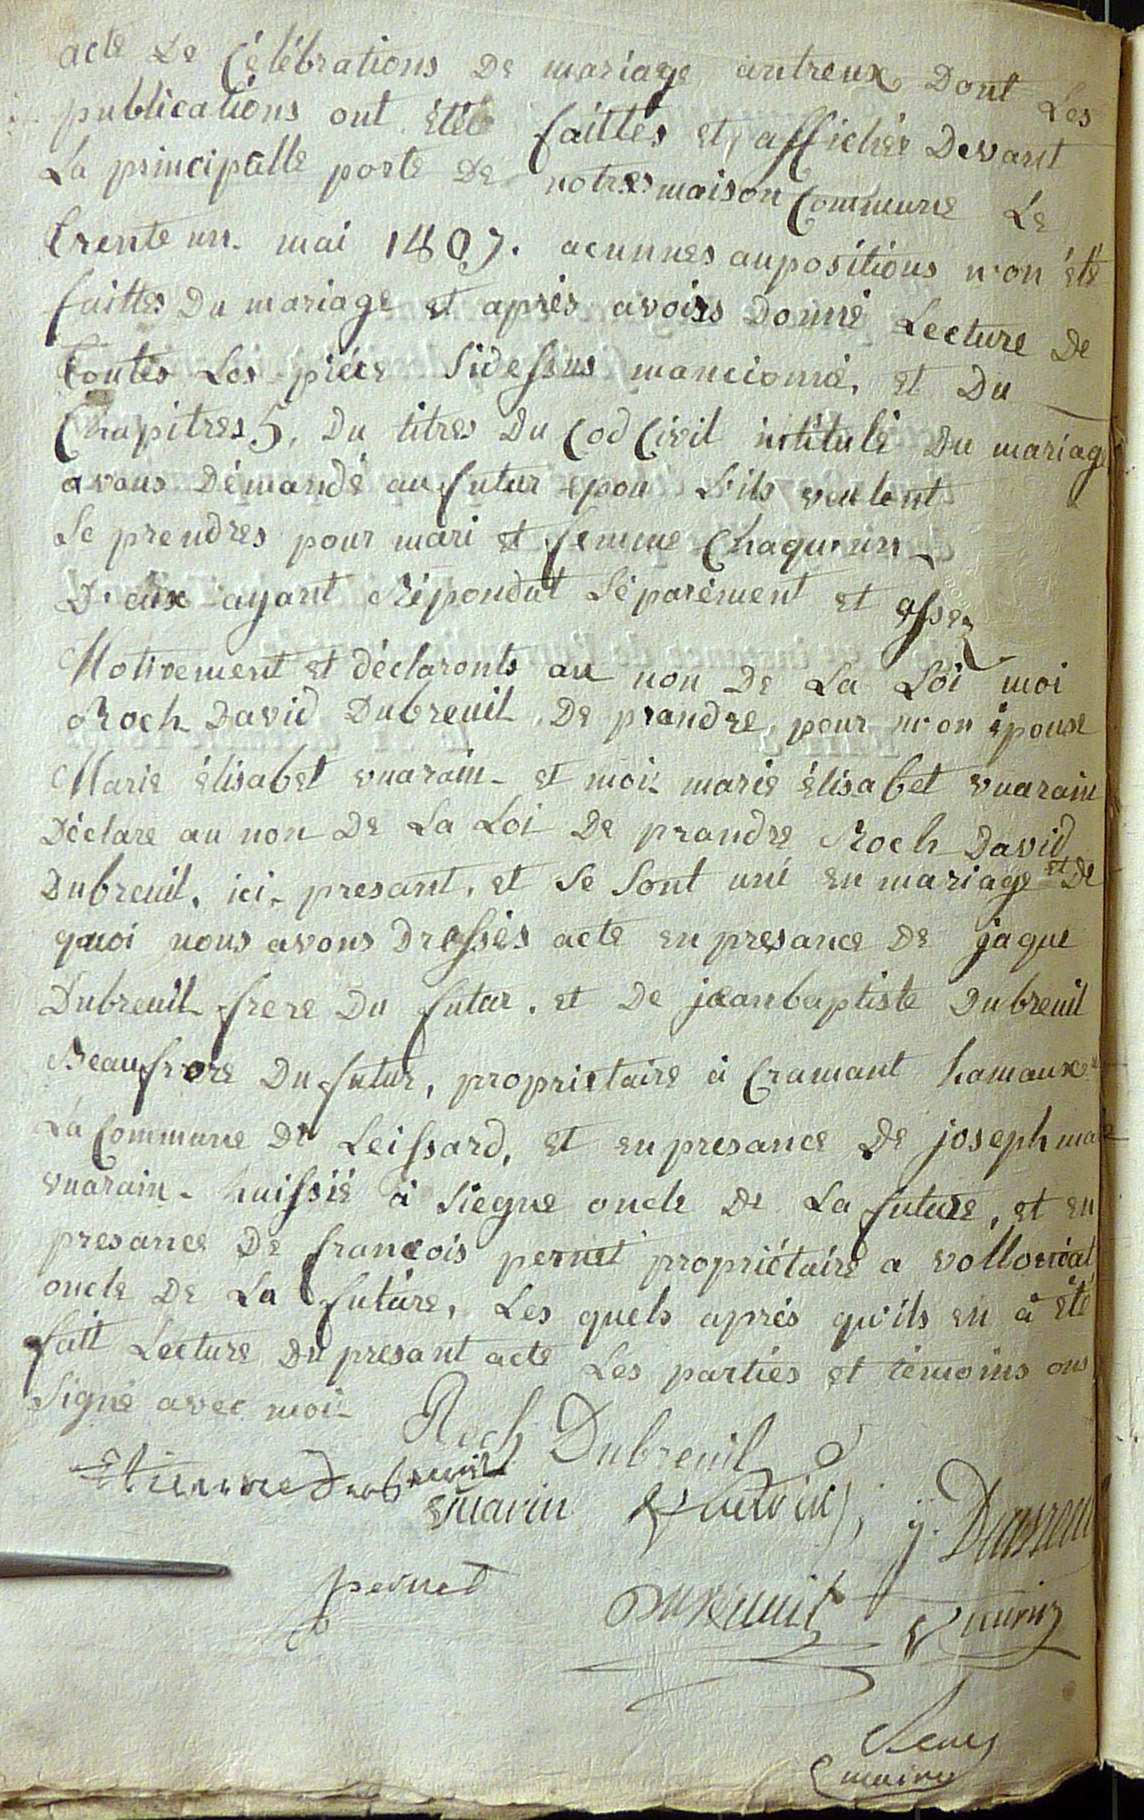 acte De Célébrations De mariage antreux Dont Les
publications ont étéé faittes et affichés Devant
La principalle porte De notres maison Commune Le
trente un. mai 1807. acunnes aupositions n'on été
faittes Du mariage et après avoirs Donné Lecture De
toutes Les piéce Sidessus mancionné, et Du
Chapitres 5, Du titres Du Cod Civil intitulé Du mariage
avons Démandé au futur epou S'ils veulent
Se prendres pour mari et femme Chaqu'un
D'eux ayant Répondut Séparément et assez
Motivement et déclaronts au non De La Loi moi
Roch David Dubreuil De prandre, pour mon épouse
Marie élisabet vuarain et moi marie élisabet vuarain
Déclare au non De La Loi De prandre Roch David
Dubreuil, ici presant, et Se Sont uni en mariage et De
quoi nous avons Dressés acte en presance De jaque
Dubreuil frere Du futur. et De jeanbaptiste Dubreuil
Beaufrore Du futur, proprietaire à Cramant hamaux
La Commune De Leissard, et en presance De joseph marie
vuarain huissié à Siegne oncle De La future, et en
presance De francois pernet propriétaire a vollognat
oncle De La future, Les quels aprés qu'ils en à été
fait Lecture Du presant acte Les partiés et témoins ons
Signé avec moi
Roch Dubreuil
Etienne Dubreuil
vuarin j. Dubreuil
pernet Dubreuil Vuarin
maire